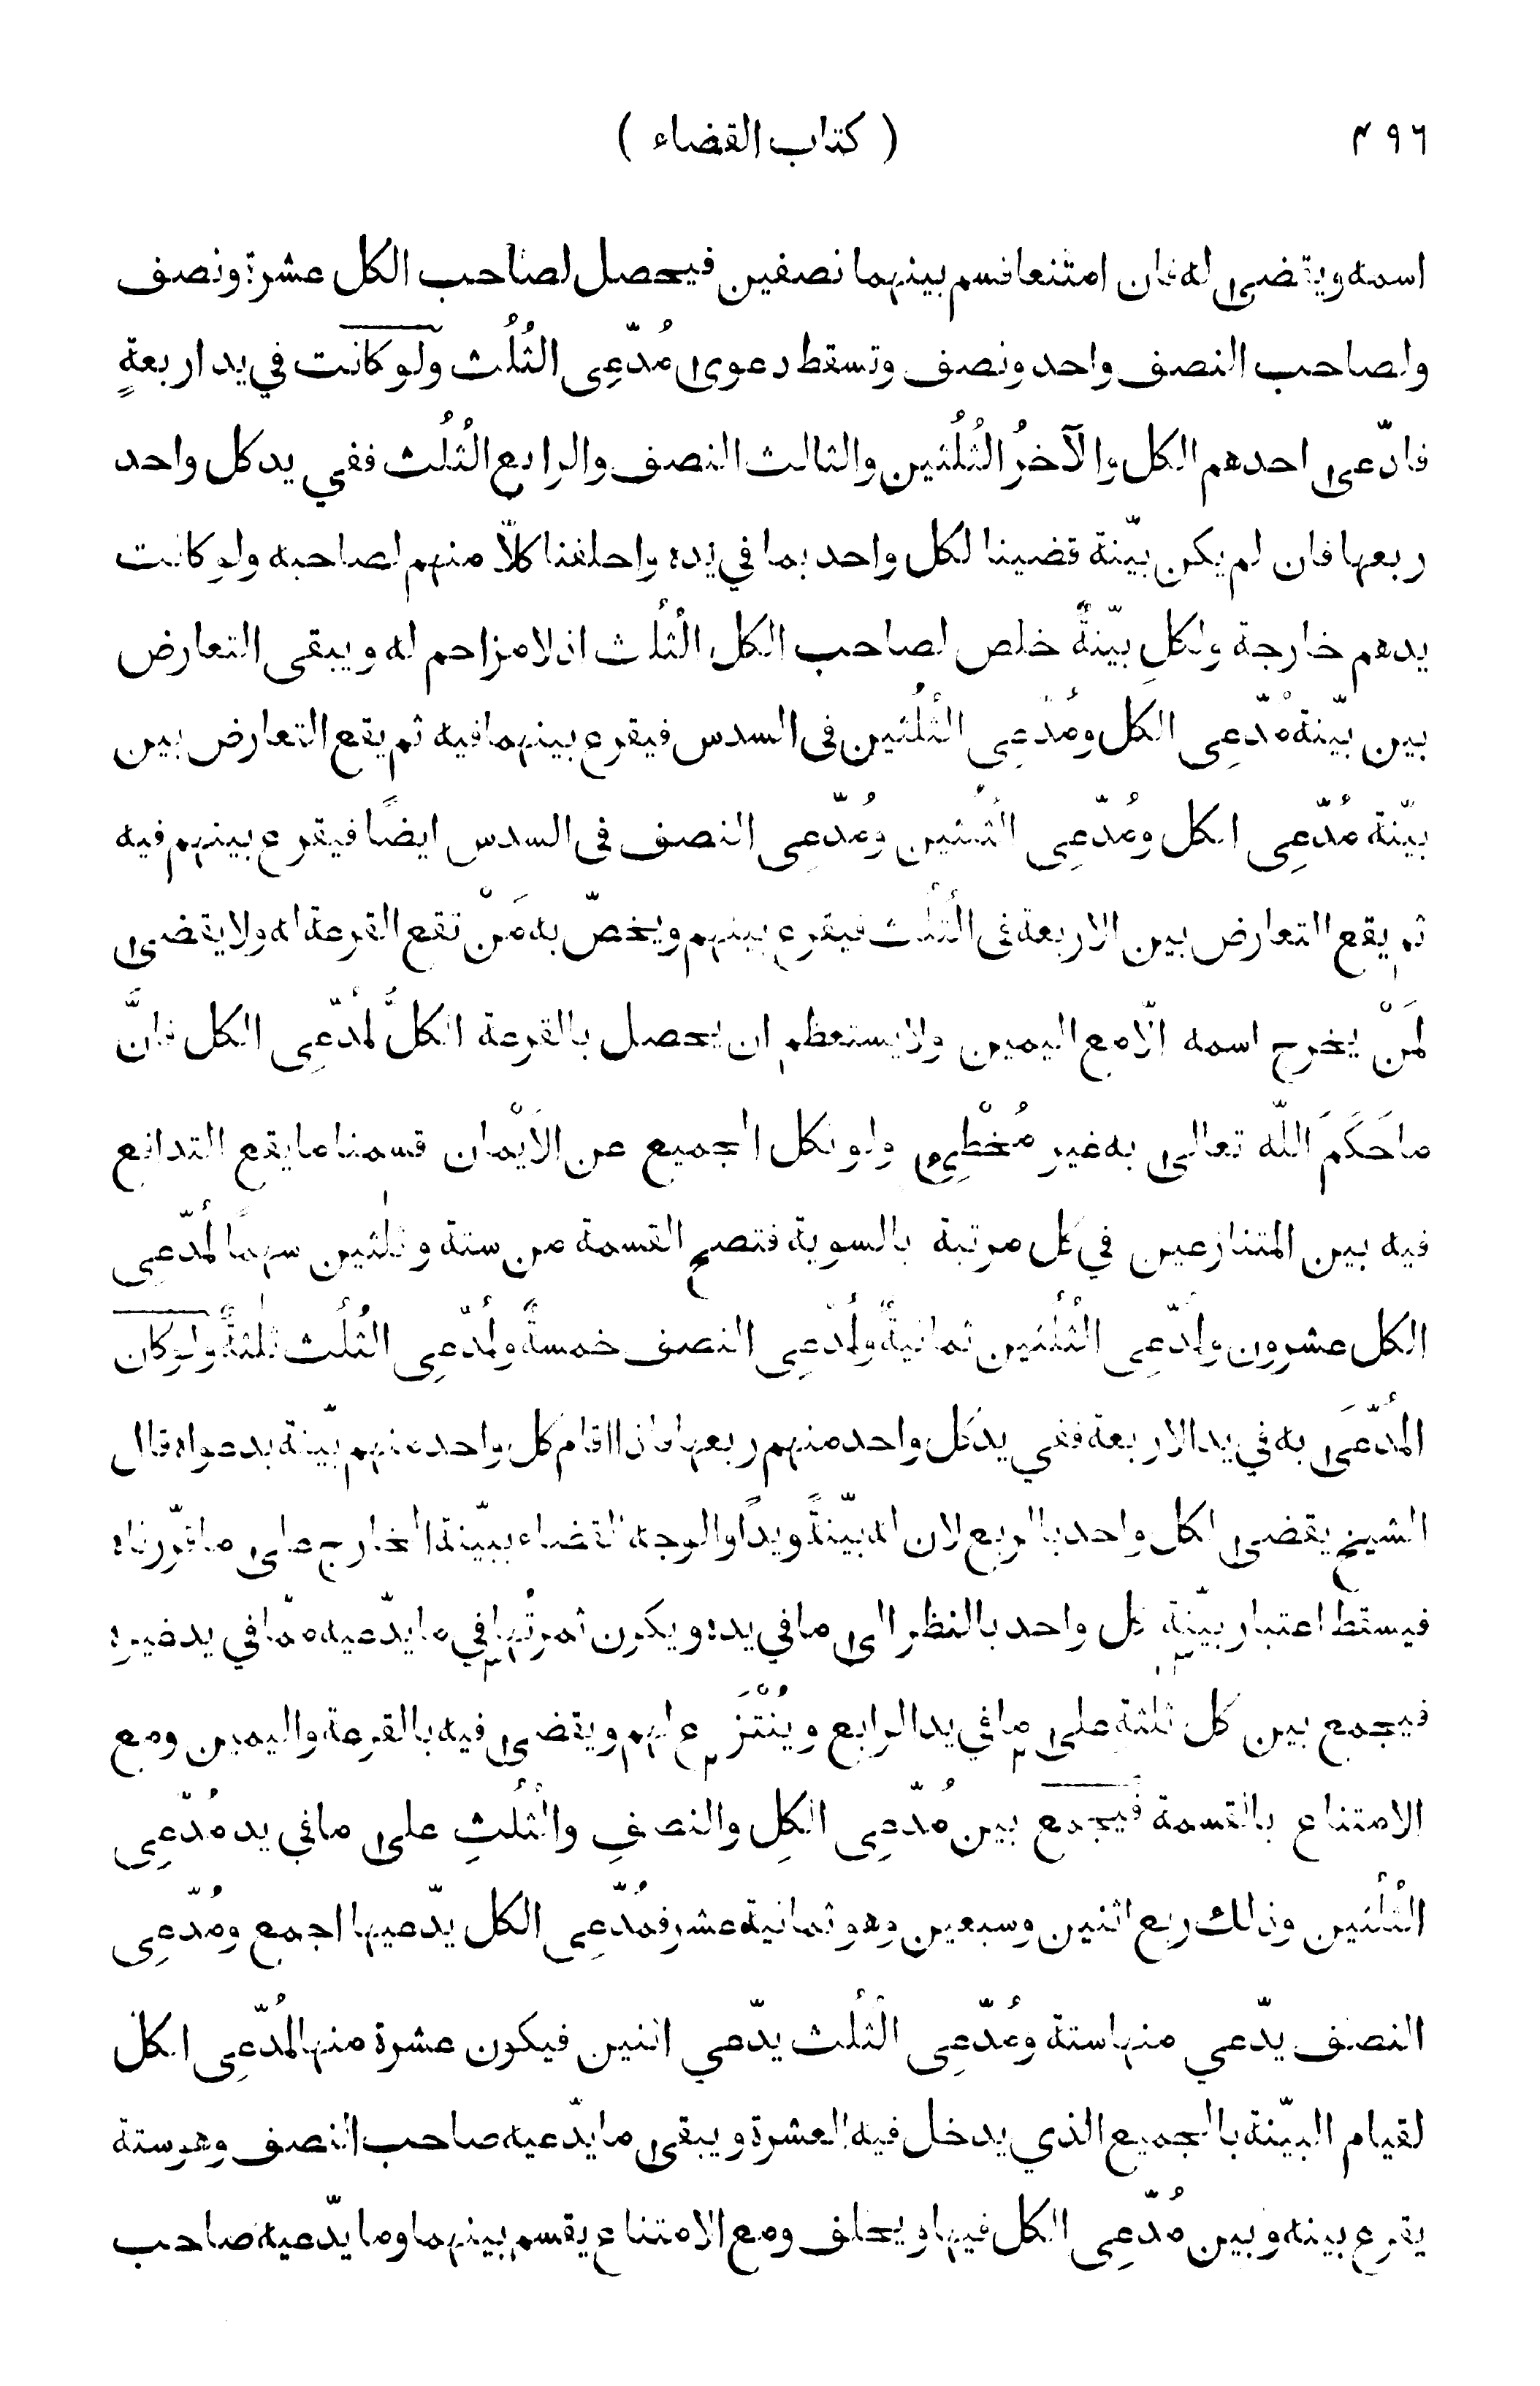 ٤٩٦
( كتاب القضاء )
اسمه ويقضى له فان امتنعا قسم بينهما نصفين فيحصل لصاحب الكل عشرة ونصف
ولصاحب النصف واحد ونصف وتسقط دعوى مُدّعِى الثُلُث ولو كانت في يد اربعةٍ
فادّعى احدهم الكل والآخرُ الثُلُثين والثالث النصف والرابع الثُلُث ففي يد كل واحد
ربعها فان لم يكن بيّنة قضينا لكل واحد بما في يده واحلفنا كلاّ منهم لصاحبه ولو كانت
يدهم خارجة ولكلِ بيّنةٌ خلص لصاحب الكل الثُلُث اذ لا مزاحم له ويبقى التعارض
بين بيّنة مُدّعِى الكل ومُدّعِى الثُلُثين فى السدس فيقرع بينهما فيه ثم يقع التعارض بين
بيّنة مُدّعِى الكل ومُدّعِى الثُلُثين ومُدّعِى النصف فى السدس ايضًا فيقرع بينهم فيه
ثم يقع التعارض بين الاربعة فى الثُلُث فيقرع بينهم ويخصّ به مَنْ تقع القرعة له ولا يقضى
لمَنْ يخرج اسمه الّا مع اليمين ولا يستعظم ان يحصل بالقرعة الكلُّ لمُدّعِى الكل فانَّ
ما حَكَمَ اللّه تعالى به غير مُخْطِئٍ ولو نكل الجميع عن الاَيْمان قسمنا ما يقع التدافع
فيه بين المتنازعين في كل مرتبة بالسوية فتصح القسمة من ستة وثلثين سهمًا لمُدّعِى
الكل عشرون ولمُدّعِى الثُلُثين ثمانيةٌ ولمُدّعِى النصف خمسةٌ ولمُدّعِى الثُلُث ثلثةٌ ولو كان
المُدّعَى به في يد الاربعة ففي يد كل واحد منهم ربعها فاذا اقام كل واحد منهم بيّنة بدعواه قال
الشيخ يقضى لكل واحد بالربع لان له بيّنةً ويدًا والوجه القضاء ببيّنة الخارج على ما قرّرناه
فيسقط اعتبار بيّنةِ كل واحد بالنظر الى ما في يده ويكون ثمرتُها في ما يدّعيه ممّا في يد غيره
فيجمع بين كل ثلثة على ما في يد الرابع ويُنْتَزَع لهم ويقضى فيه بالقرعة واليمين ومع
الامتناع بالقسمة فيجمع بين مُدّعِى الكلِ والنصفِ والثُلُثِ على ما في يد مُدّعِى
الثُلُثين وذلك ربع اثنين وسبعين وهو ثمانية عشر فمُدّعِى الكل يدّعيها اجمع ومُدّعِى
النصف يدّعي منها ستة ومُدّعِى الثُلُث يدّعي اثنين فيكون عشرة منها لمُدّعِى الكل
لقيام البيّنة بالجميع الذي يدخل فيه العشرة ويبقى ما يدّعيه صاحب النصف وهو ستة
يقرع بينه وبين مُدّعِى الكل فيها ويحلف ومع الامتناع يقسم بينهما وما يدّعيه صاحب